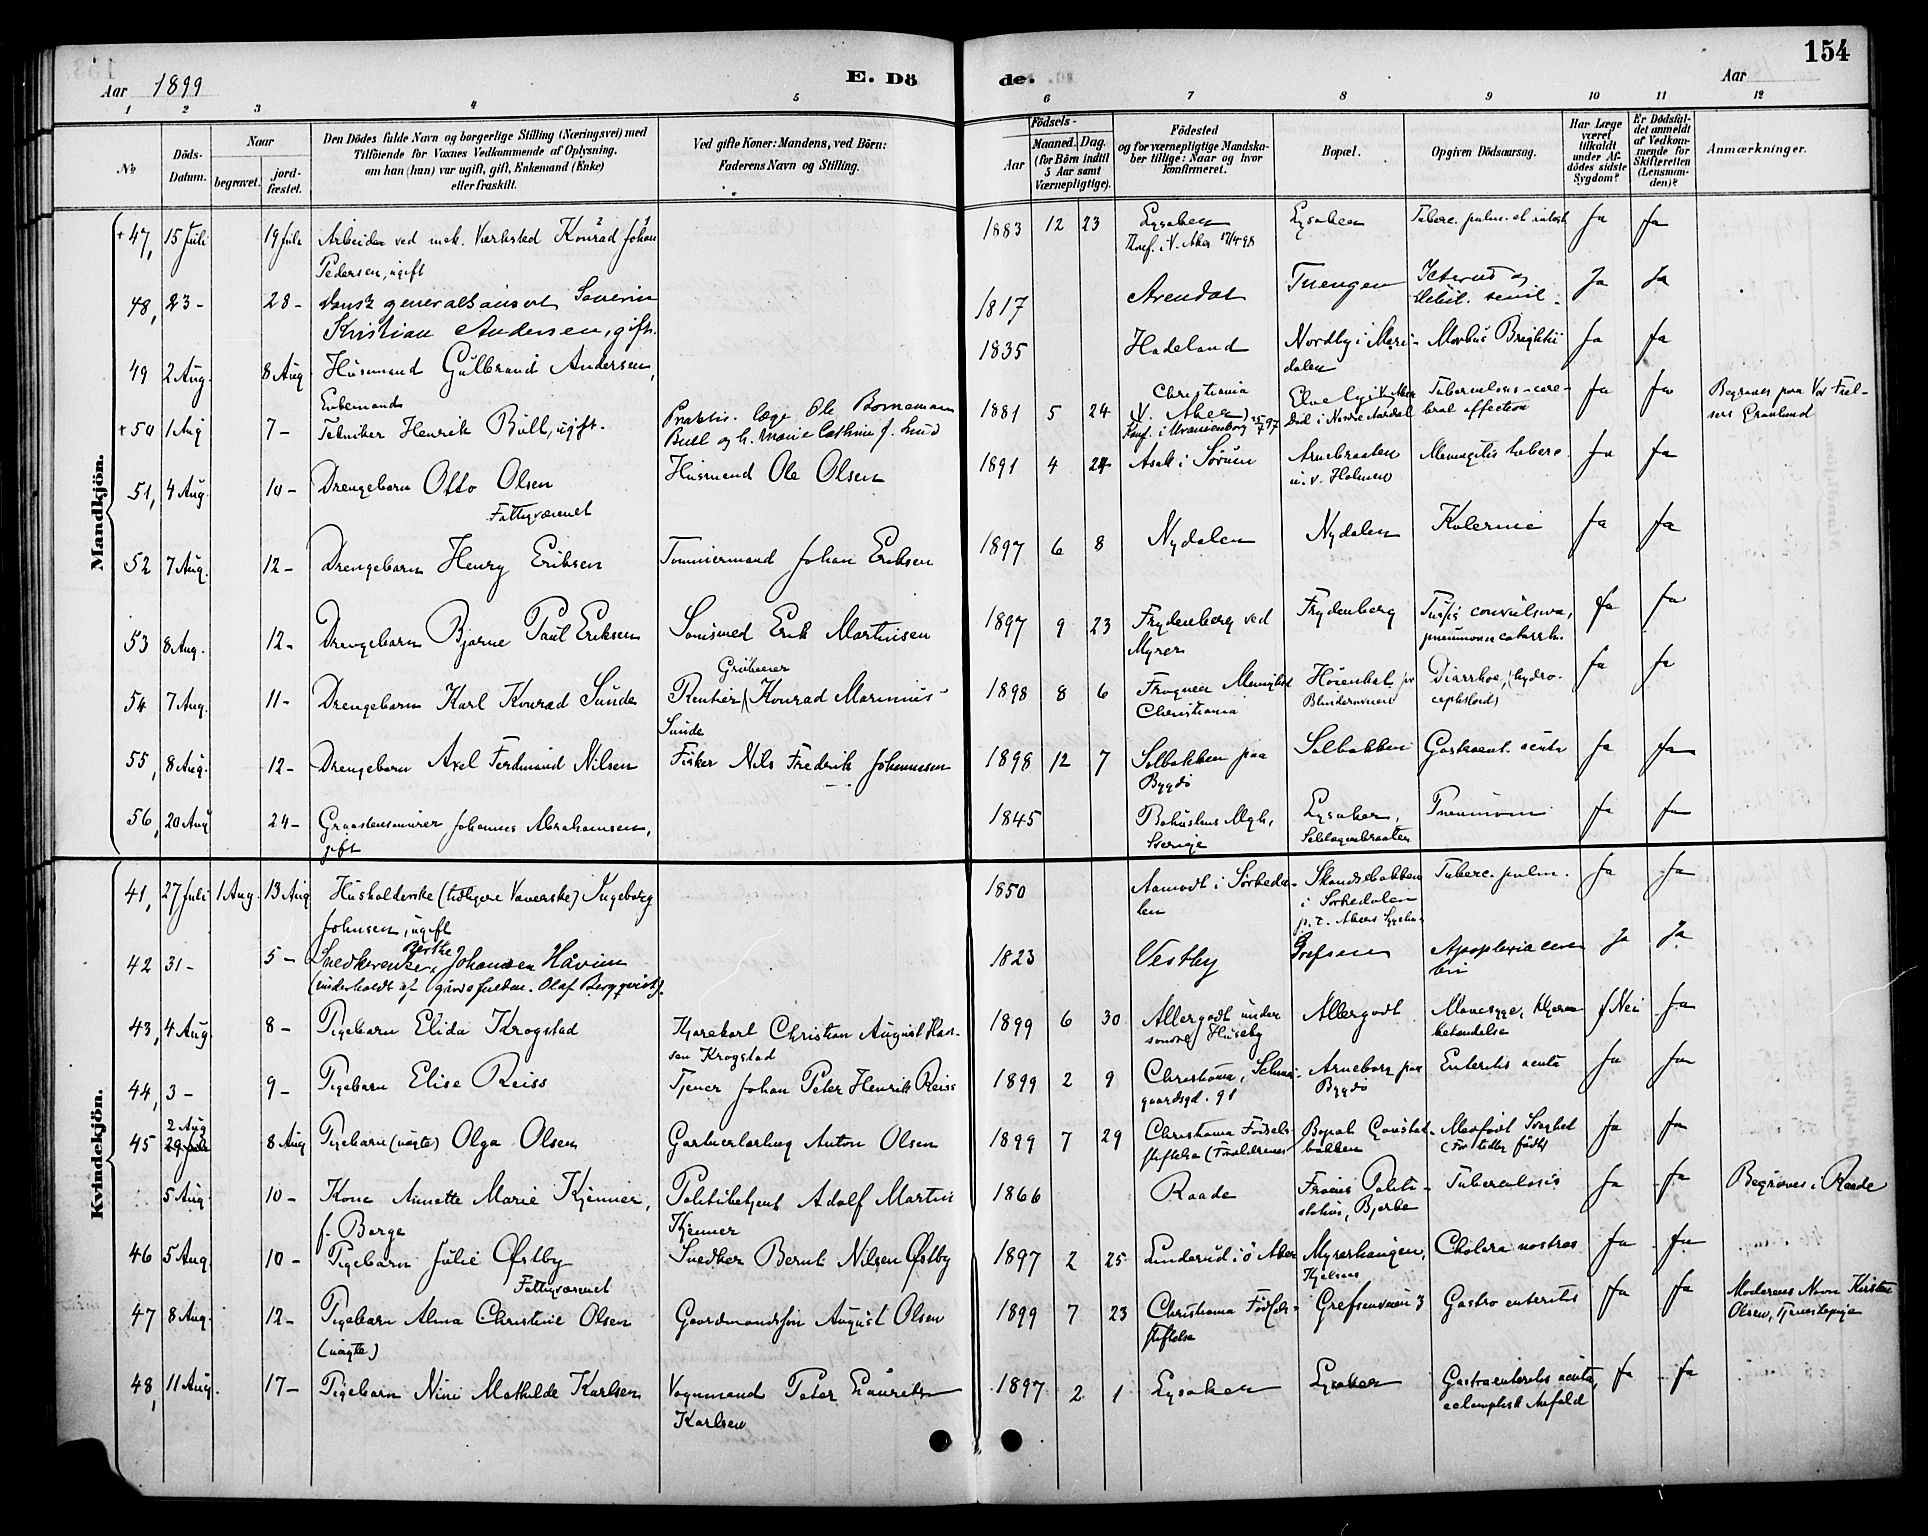 154
Aar 1899
E. Dö
de.
Aar
1 2 3 4 5 6 7 8 9 10 11 12
No
Döds-Datum.
Naar
begravet.
jord-fæstet.
Den Dödes fulde Navn og borgerlige Stilling (Næringsvei) med
Tilföiende for Voxnes Vedkommende af Oplysning,
om han (hun) var ugift, gift, Enkemand (Enke)
eller fraskilt.
Ved gifte Koner: Mandens, ved Börn:
Faderens Navn og Stilling.
Födsels-
Aar
Maaned. Dag.
(for Börn indtil
5 Aar samt
Værnepligtige).
Födested
og for værnepligtige Mandska-
ber tillige: Naar og hvor
konfirmeret.
Bopæl.
Opgiven Dödsaarsag.
Har Læge
været
tilkaldt
under Af-
dödes sidste
Sygdom?
Er Dödsfal-
det anmeldt
af Vedkom-
mende for
Skifteretten
(Lensman-
den)?
Anmærkninger.
Mandkjön.
+ 47, 15 Juli 19 Juli Arbeider ved mek. Værksted Konrad Johan 1883 12 23 Lysaker Lysaker Tuberc. pulm. et intest. Ja Ja
Pedersen, ugift Konf. i V. Aker 17/4 98
48, 23 - 28 - Dansk generalkonsul Severin 1817 Arendal Tuengen Icterus og Ja Ja
Kristian Andersen, gift. debil. senil.
49 2 Aug. 8 Aug Husmand Gulbrand Andersen, 1835 Hadeland Nordby i Mari- Morbus Brightii Ja Ja
Enkemand dalen
+ 50 1 Aug 7 - Tekniker Henrik Bull, ugift. Praktis. læge Ole Bornemann 1881 5 24 Christiania Elvely i V. Aker Tuberculosis - cere- Ja Ja Begraves paa Vor Frel-
Bull og h. Marie Cathrine f. Lund (V. Aker) Död i Nordre Aurdal bral affection sers Gravlund
Konf. i Uranienborg
51, 4 Aug. 10 - Drengebarn Otto Olsen Husmand Ole Olsen 1891 4 24 Ask i Sørum Arnebraaten Meningitis tuberc. Ja Ja
Fattigvæsenet u. v. Holmen
52 7 Aug. 12 - Drengebarn Henry Eriksen Tømmermand Johan Eriksen 1897 6 8 Nydalen Nydalen Kolerine Ja Ja
53 8 Aug. 12 - Drengebarn Bjarne Paul Eriksen Erik Martinsen 1897 9 23 Frydenberg ved Frydenberg Tussis convulsiva, Ja Ja
Myrer pneumonia catarrh.
54 7 Aug. 11 - Drengebarn Karl Konrad Sunde Rentier Konrad Marinius 1898 8 6 Frogner Menighed Diarrhoe, (hydro- Ja Ja
Sunde Christiania Blindernveien cephaloid)
55, 8 Aug. 12 - Drengebarn Axel Ferdinand Nilsen Fisker Nils Fredrik Johannesen 1898 12 7 Solbakken paa Solbakken Gastroent. acuta Ja Ja
Bygdö
56, 20 Aug 24 - Graastensmurer Johannes Abrahamsen, 1845 Bohuslens Mgh., Lysaker, Pneumoni Ja Ja
gift Sverige
Kvindekjön.
41, 27 Juli 1 Aug. 13 Aug Husholderske (tidligere Væverske) Ingeborg 1850 Aamodt i Sørkeda- Skandsebakken Tuberc. pulm. Ja Ja
Johnsen, ugift len i Sørkedalen
p. t. Akers Sygehus
42 31 - 5 - Snedkerenke Berthe Johansen Håvien 1823 Vestby Grefsen Apoplexia cere- Ja Ja
(underholdt af gårdsfuldm. Olaf Bergqvist). bri
43, 4 Aug. 8 - Pigebarn Elida Krogstad Kjørekarl Christian August Han- 1899 6 30 Allergodt under Allergodt Mavesyge, Hjerne- Nei Ja
sen Krogstad søndre Huseby betændelse
44, 3 - 9 - Pigebarn Elise Reiss Tjener Johan Peter Henrik Reiss 1899 2 9 Christiania, Arneborg paa Enteritis acuta Ja Ja
gaardsgd. 91 Bygdö
45 2 Aug 29 Juli 8 Aug Pigebarn (uægte) Olga Olsen Gartnerlærling Anton Olsen 1899 7 29 Christiania Födsels- Bopæl Gaustad- Medfödt Svaghed Ja Ja
stiftelse (Forældrenes bakken (For tidlig födt)
5 Aug. 10 - Kone Annette Marie Kjenner, Politibetjent Adolf Martin 1866 Raade Politi- Tuberculosis Ja Ja Begraves i Raade
f. Borge Kjenner station, Bjerke
46 5 Aug. 10 - Pigebarn Julie Østby Snedker Bernt Nilsen Østby 1897 2 25 Linderud i Ö Aker Myrerhaugen, Cholera nostras Ja Ja
Fattigvæsenet Kjelsaas
47 8 Aug. 12 - Pigebarn Alma Christine Olsen Gaardmandssön August Olsen 1899 7 23 Christiania Fødsels- Grefsenveien 3 Gastro enteritis Ja Ja Moderens Navn Kirstine
(uægte) stiftelse Olsen, Tjenestepige
48, 11 Aug. 17 - Pigebarn Nini Mathilde Karlsen Vognmand Peter Lauritz 1897 2 1 Lysaker Lysaker Gastroenteritis acuta, Ja Ja
Karlsen eclamptisk Anfald